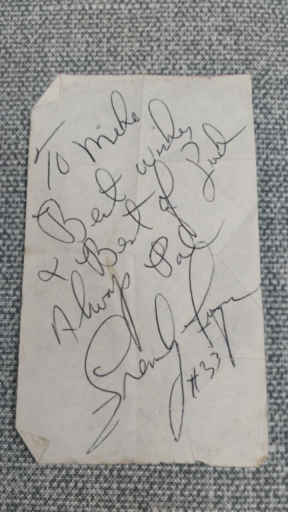 To Mike
Best wishes
& Best of Luck
Always Pal
#33